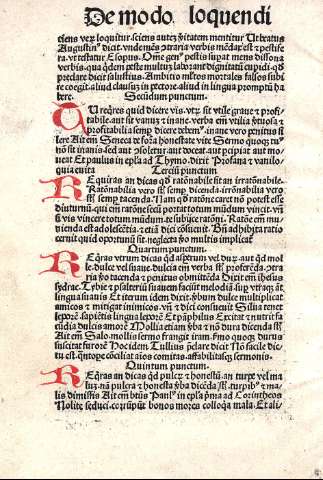 De modo loquendi
tiens verū loquitur sciens autez v̄itatem mentitur Ut beatus
Augustin⁹ dicit. vnde nues 9traria verbis mēdax est z pestife
ra. vt testatur Esopus. Ome gen⁹ pestis supat mens dissona
verbis. qua q̄dem peste multuz laborant dignitatū cupidi. qđ
preclare dicit salustius. Ambitio ml̄tos mortales falsos subi
re coegit. aliud clausuz in pectore. aliud in lingua promptū ha
bere. Secūdum punctum.
QU reqres quid dicere vis. vtrū sit vtile graue z profi
tabile. aut sit vanuz z inane. verba em̄ vtilia fructuosa z
profitabilia semp dicere debem⁹. inane vero penitus si
lere Ait em̄ Seneca
nū sit inanis. sed aut 9soletur. aut doceat. aut p̄cipiat aut mo
ueat. Et paulus in ep̄la ad Thymo. dixit. Profana z vanilo
quia euita Terciū punctum
REquiras an dicas qđ ratōnabile sit an irratōnabile.
Ratōnabilia vero sp̄ semp dicenda. irrōnabilia vero
sp̄ semp tacenda. Nam qđ ratōne caret nō potest esse
diuturnū. qui em̄ rationē secū portat totum mūdum vincit. vn̄
si vis vincere totum mūdum. te subijce ratōni. Ratōe em̄ mu
nienda est adolescētia. z etiā dici cōsueuit. Bn̄ adhibita ratio
cernit quid oportunū sit. neglecta v̄o multis implicat
Quartum punctum.
REqras vtrum dicas qđ asperum vel duz. aut qđ mol
le. dulce vel suaue. dulcia em̄ verba sp̄ proferēda. 9tra
ria v̄o tacenda z penitus obmittēda Dixit em̄ ihesus
sydrac. Tybie z psalteriū suauem faciūt melodiā. sup vtraqz āt
lingua suauis Et iterum idem dixit. v̄bum dulce multiplicat
amicos z mitigat inimicos. vn̄ z dici consueuit
lepore. sapiētis lingua lepore Et pāphilus Excitat z nutrit fa
cūdia dulcis amore Mollia etiam v̄ba z nō dura dicenda sūt
Ait em̄ Salo. mollis sermo frangit iram. f̄mo quoqz durus
suscitat furore Nō cidem Tullius pclare dicit Nō facile dic
tu est. q̄ntope cōciliat aios comitas. affabilitasqz sermonis.
Quintum punctum.
REqras an dicas qđ pulcz z honestū. an turpe vel ma
luz. nā pulcra z honesta v̄ba dicēda sūt. turpib⁹ z ma
lis dimissis Ait em̄ btūs Paul⁹ in ep̄la pma ad Corintheos
Nolite seduci. corrūpūt bonos mores colloqa mala. Et ali